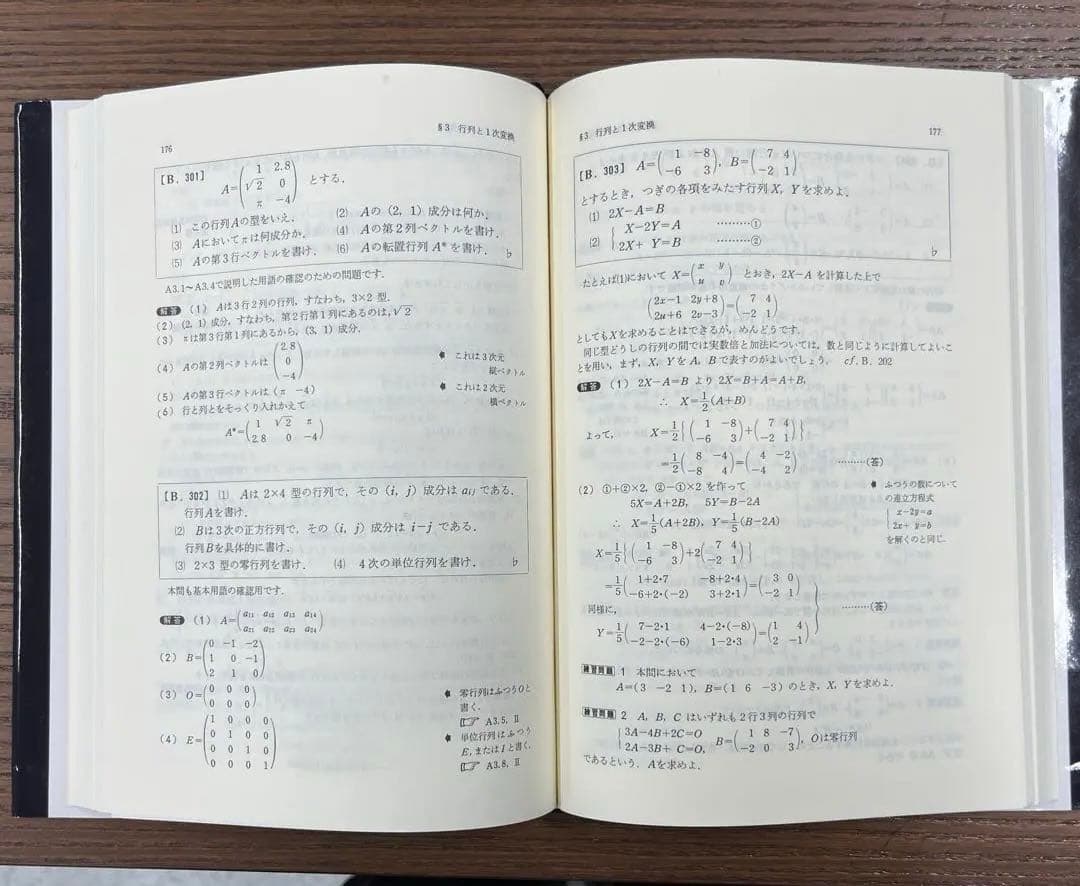 176
§3 行列と1次変換
[B. 301]
A=(1 2.8
√2 0
π −4) とする.
(1) この行列Aの型をいえ. (2) Aの(2, 1)成分は何か.
(3) Aにおいてπは何成分か. (4) Aの第2列ベクトルを書け.
(5) Aの第3行ベクトルを書け. (6) Aの転置行列A*を書け. ♭
A3.1~A3.4で説明した用語の確認のための問題です.
解答 (1) Aは3行2列の行列, すなわち, 3×2 型.
(2) (2, 1) 成分, すなわち, 第2行第1列にあるのは, √2
(3) πは第3行第1列にあるから, (3, 1) 成分.
(4) Aの第2列ベクトルは (2.8
0
−4)
これは3次元
縦ベクトル
(5) Aの第3行ベクトルは (π −4)
これは2次元
横ベクトル
(6) 行と列とをそっくり入れかえて
A*=(1 √2 π
2.8 0 −4)
[B. 302] (1) Aは2×4 型の行列で, その (i, j) 成分は aij である.
行列Aを書け.
(2) Bは3次の正方行列で, その (i, j) 成分は i−j である.
行列Bを具体的に書け.
(3) 2×3 型の零行列を書け. (4) 4次の単位行列を書け. ♭
本問も基本用語の確認用です.
解答 (1) A=(a11 a12 a13 a14
a21 a22 a23 a24)
(2) B=(0 −1 −2
1 0 −1
2 1 0)
(3) O=(0 0 0
0 0 0)
零行列はふつうOと
書く.
☞ A3.5, II
(4) E=(1 0 0 0
0 1 0 0
0 0 1 0
0 0 0 1)
単位行列はふつう
E, またはIと書く.
☞ A3.8, II
§3 行列と1次変換
177
[B. 303] A=(1 −8
−6 3), B=(7 4
−2 1)
とするとき, つぎの各項をみたす行列X, Yを求めよ.
(1) 2X−A=B
(2) {X−2Y=A ………①
2X+ Y=B ………②
♭
たとえば(1)において X=(x y
u v) とおき, 2X−A を計算した上で
(2x−1 2y+8
2u+6 2v−3)=(7 4
−2 1)
としてもXを求めることはできるが, めんどうです.
同じ型どうしの行列の間では実数倍と加法については, 数と同じように計算してよいこ
とを用い, まず, X, YをA, Bで表すのがよいでしょう. cf. B. 202
解答 (1) 2X−A=B より 2X=B+A=A+B,
∴ X=1/2(A+B)
よって, X=1/2{(1 −8
−6 3)+(7 4
−2 1)}
=1/2(8 −4
−8 4)=(4 −2
−4 2) ………(答)
(2) ①+②×2, ②−①×2 を作って
5X=A+2B, 5Y=B−2A
∴ X=1/5(A+2B), Y=1/5(B−2A)
ふつうの数について
の連立方程式
{x−2y=a
2x+ y=b
を解くのと同じ.
X=1/5{(1 −8
−6 3)+2(7 4
−2 1)}
=1/5(1+2•7 −8+2•4
−6+2•(−2) 3+2•1)=(3 0
−2 1)
同様に,
………(答)
Y=1/5(7−2•1 4−2•(−8)
−2−2•(−6) 1−2•3)=(1 4
2 −1)
練習問題 1 本問において
A=(3 −2 1), B=(1 6 −3) のとき, X, Yを求めよ.
練習問題 2 A, B, C はいずれも2行3列の行列で
{3A−4B+2C=O
2A−3B+ C=O, B=(1 8 −7
−2 0 3), Oは零行列
であるという. Aを求めよ.